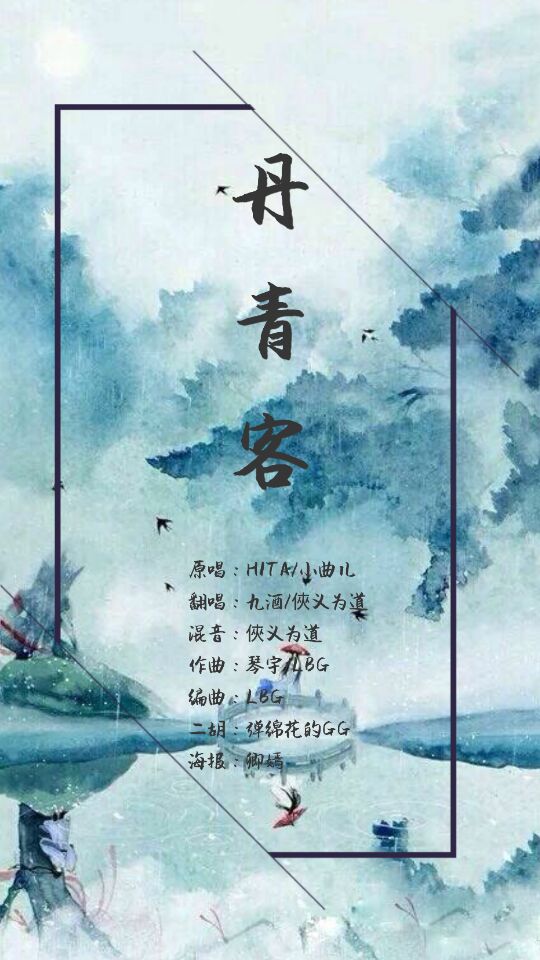 丹青客
原唱：HITA/小曲儿
翻唱：九酒/俠义为道
混音：俠义为道
作曲：琴宇/LBG
编曲：LBG
二胡：弹绵花的GG
海报：卿嫣